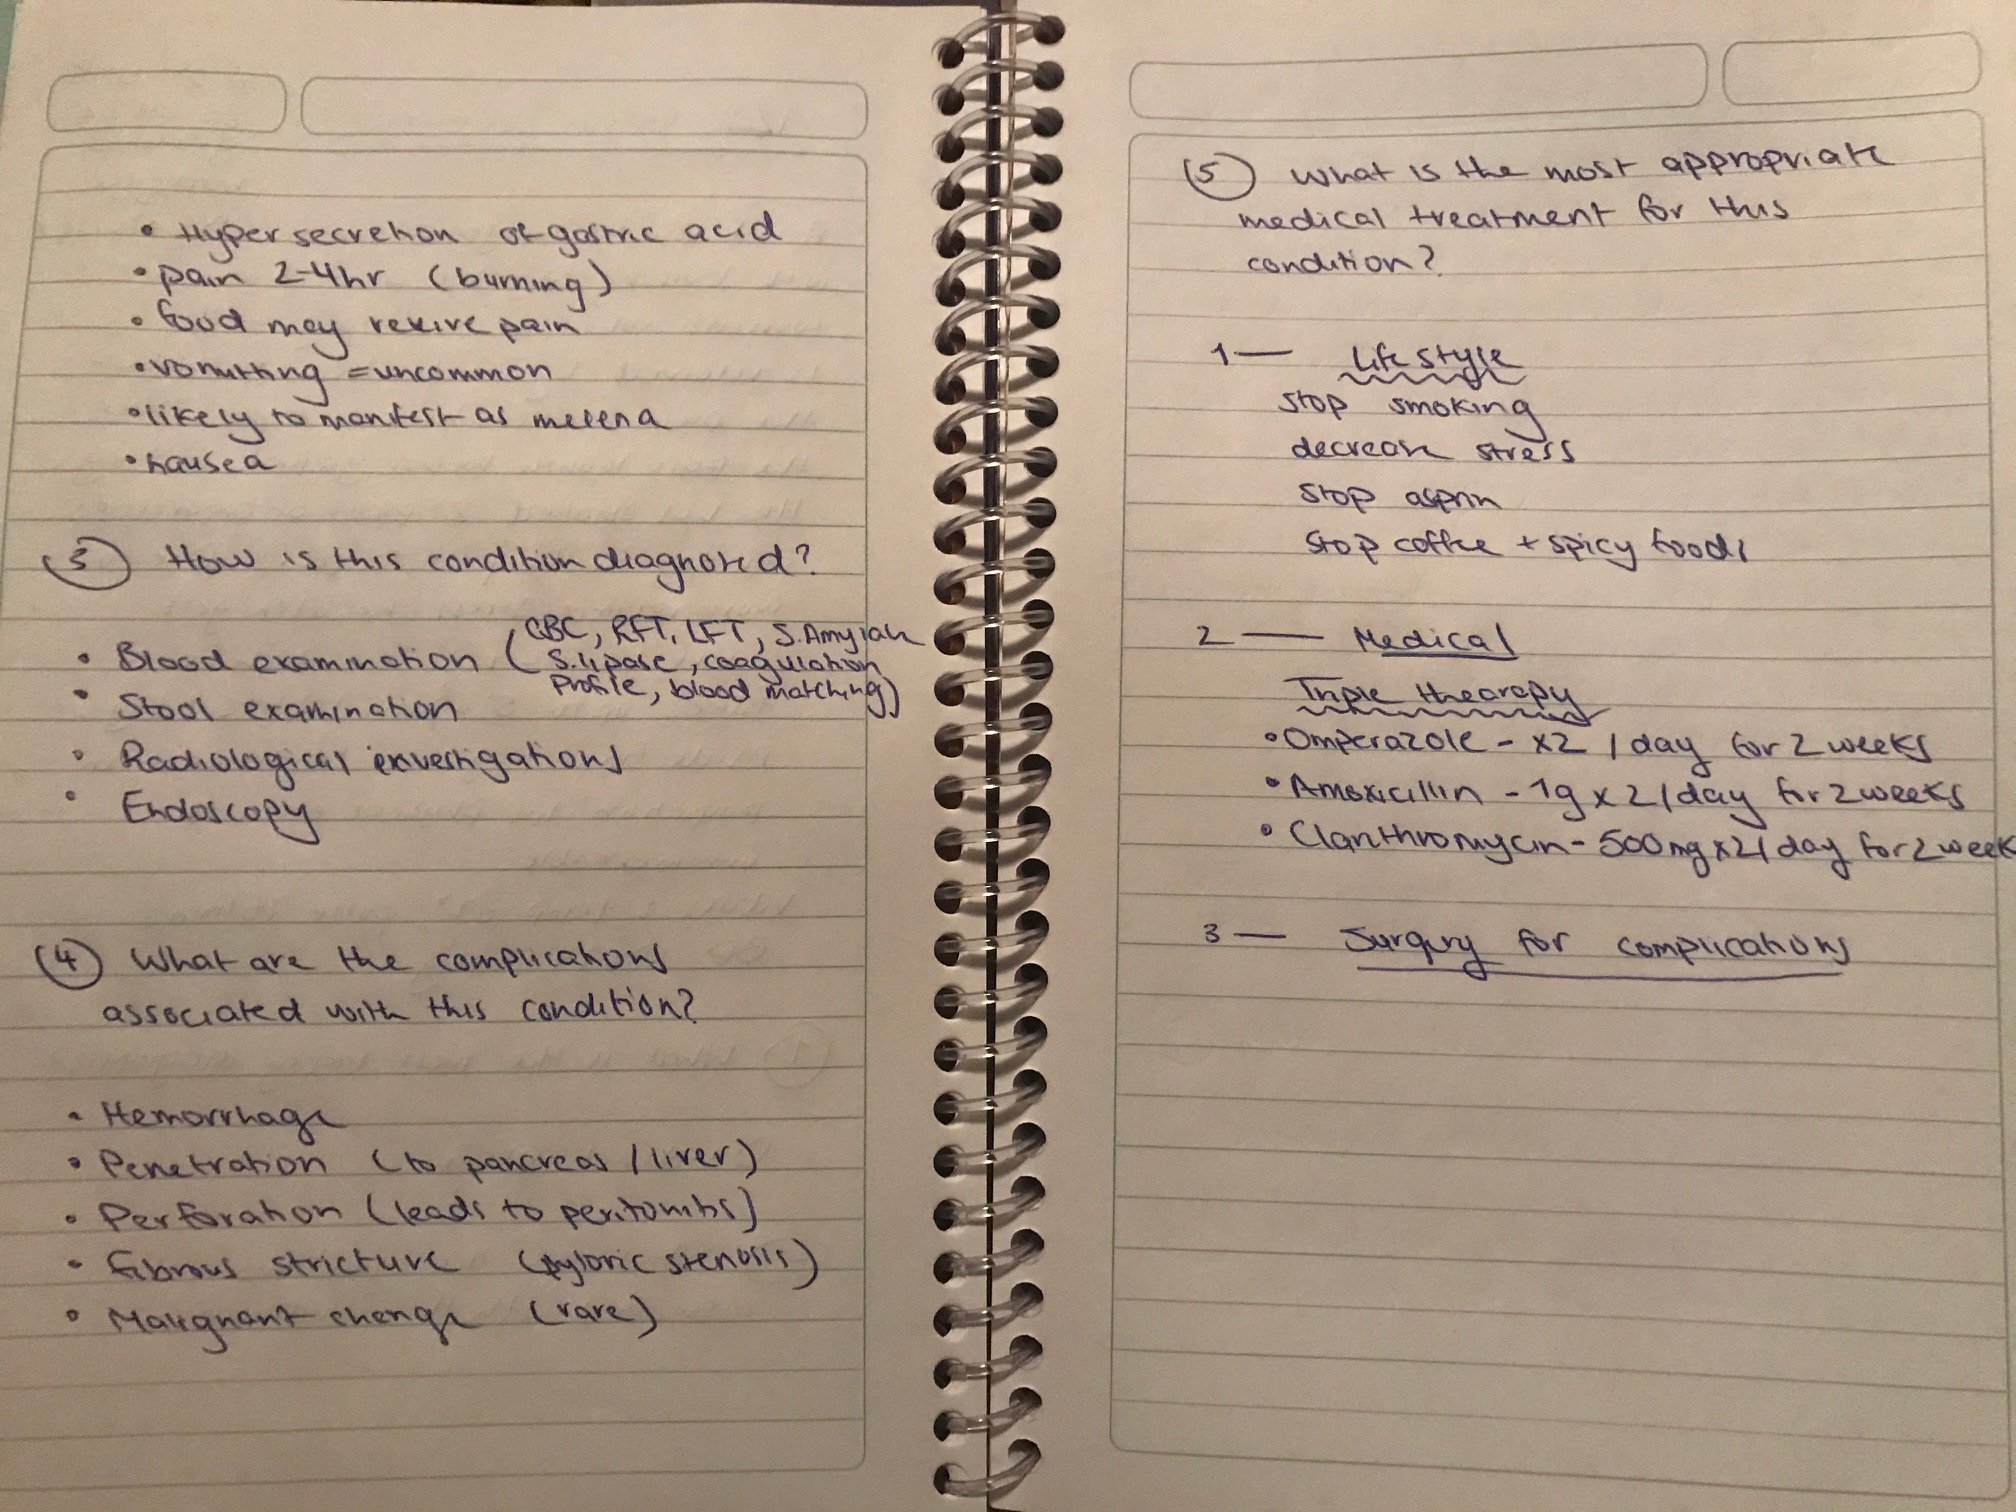 • Hypersecretion of gastric acid
• pain 2-4hr (burning)
• food may relieve pain
• vomitting = uncommon
• likely to manifest as melena
• nausea
(3) How is this condition diagnosed?
• Blood examination (CBC, RFT, LFT, S.Amylase
S.lipase, coagulation
Profile, blood matching)
• Stool examination
• Radiological investigations
• Endoscopy
(4) What are the complications
associated with this condition?
• Hemorrhage
• Penetration (to pancreas / liver)
• Perforation (leads to peritonitis)
• fibrous stricture (pyloric stenosis)
• Malignant change (rare)
(5) What is the most appropriate
medical treatment for this
condition?
1 — Life style
stop smoking
decrease stress
stop asprin
stop coffee + spicy foods
2 — Medical
Triple thearapy
• Omperazole - x2 / day for 2 weeks
• Amoxicillin - 1g x 2 / day for 2 weeks
• Clarithromycin - 500mg x2 / day for 2 week
3 — Surgury for complications